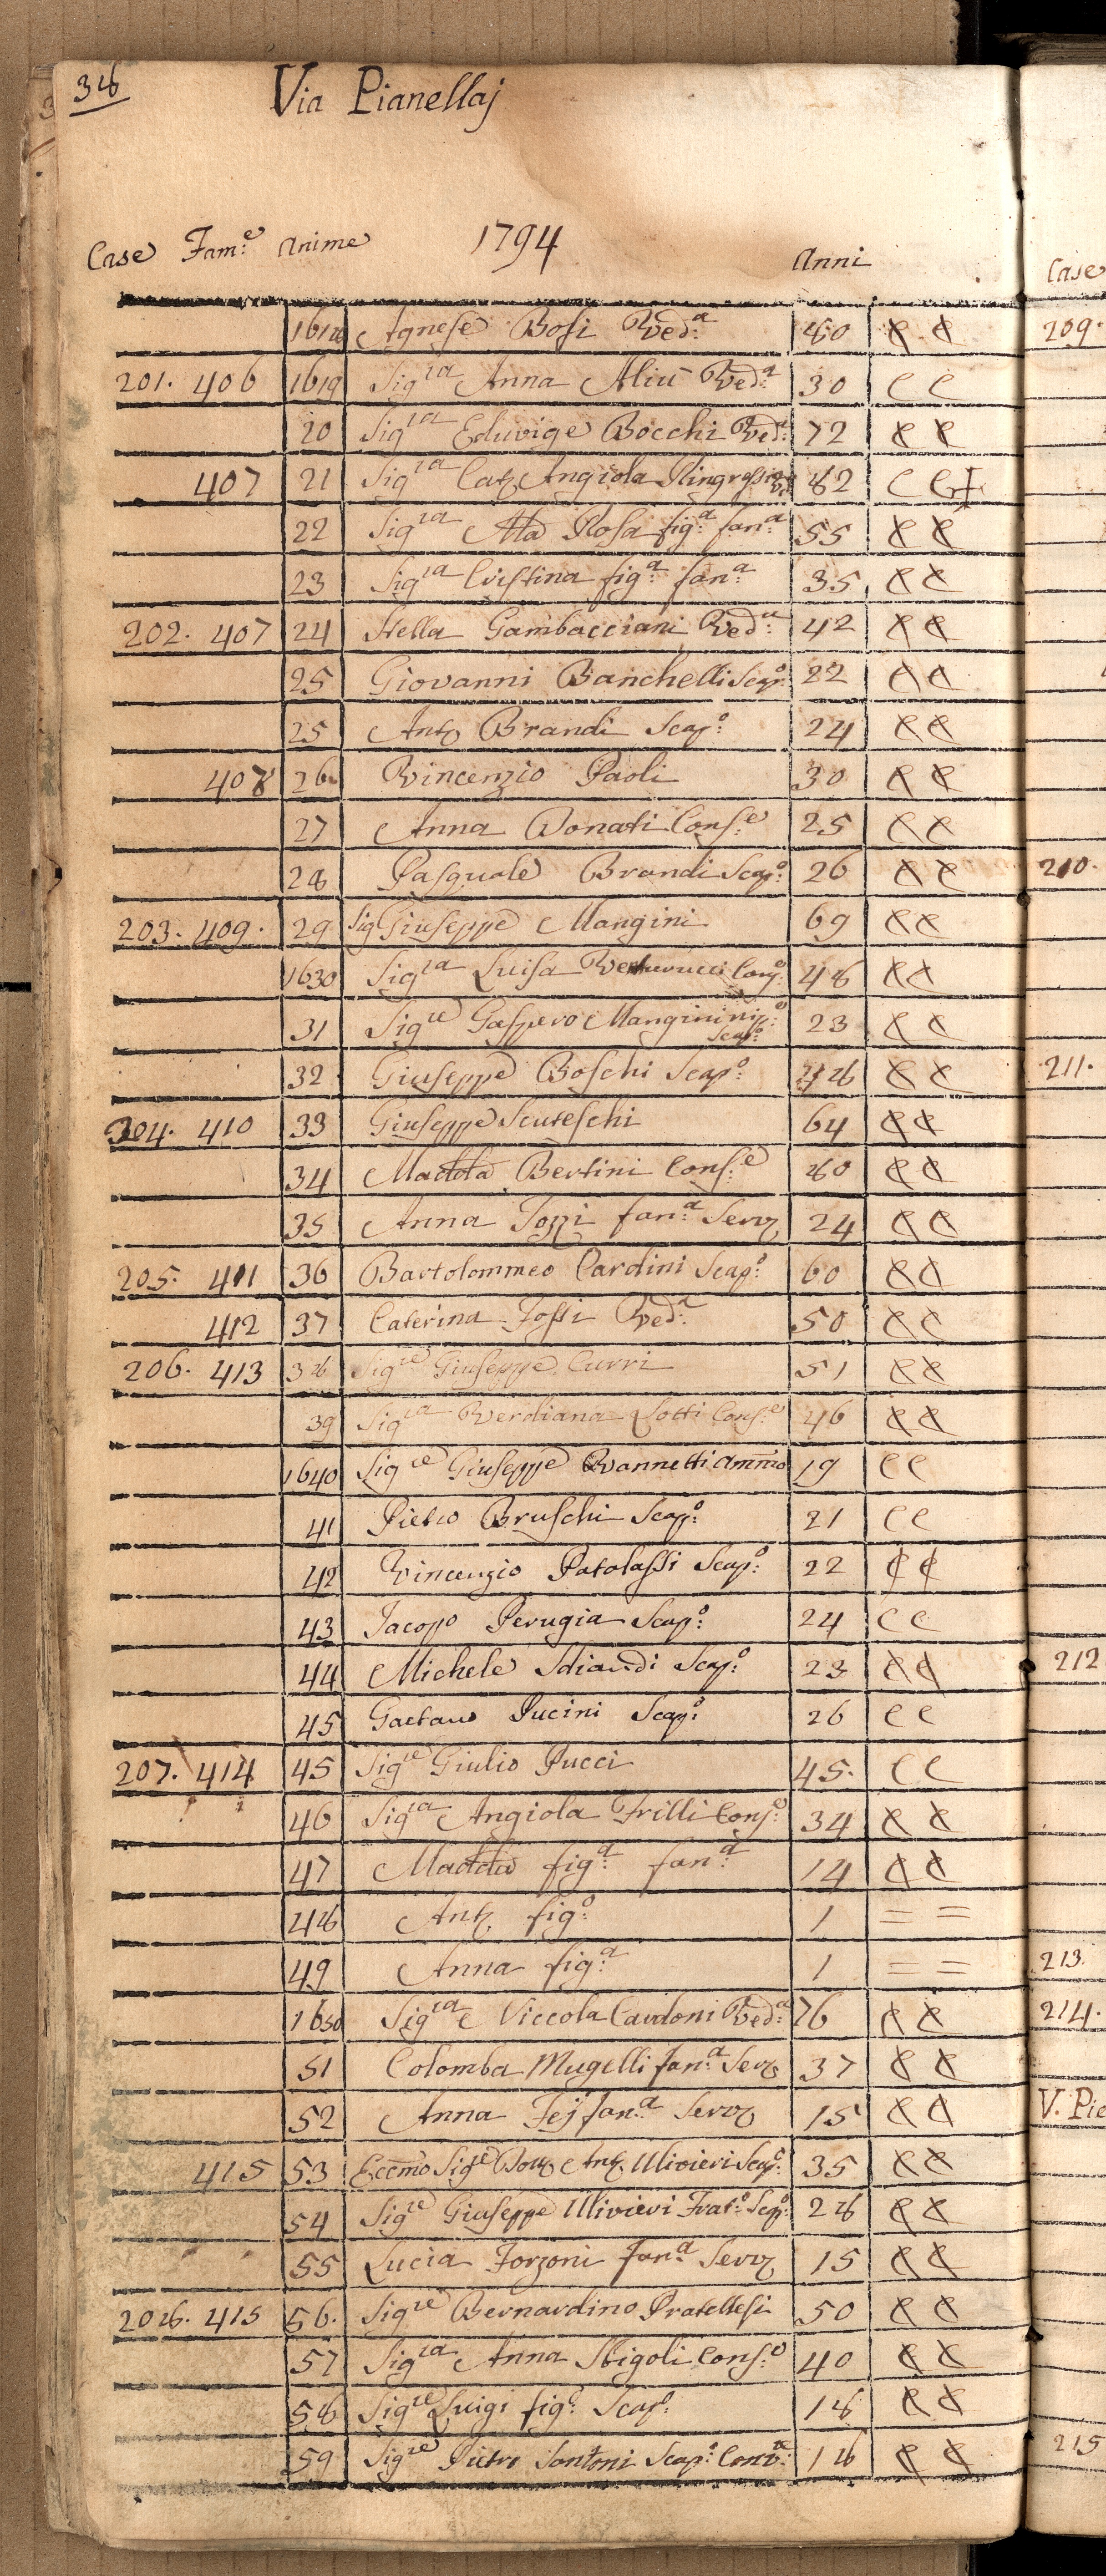 38
Via Pianellaj
Case Fam:e Anime 1794 Anni
1618 Agnese Bosi Ved:a 80
201. 406 1619 Sigra Anna Ved:a 30
20 Sigra Eduvige Bocchi Ved:a 72
407 21 Sigra Angiola 82
22 Sigra Rosa fig:a fan:a 55
23 Sigra Cristina fig:a fan:a 35
202. 407 24 Stella Gambacciani Ved:a 42
25 Giovanni Banchelli Scap:o 22
25 Anto Brandi Scap:o 24
408 26 Vincenzio Paoli 30
27 Anna Donati Cons:e 25
28 Pasquale Brandi Scap:o 26
203. 409. 29 Sig Giuseppe Mangini 69
1630 Sigra Luisa Cons:e 48
31 Sigre Gaspero Mangini nip:e Scap:o 23
32 Giuseppe Boschi Scap:o 28
204. 410 33 Giuseppe Scuteschi 64
34 Maddda Bertini Cons:e 60
35 Anna Tozzi fan:a Serva 24
205. 411 36 Bartolommeo Cardini Scap:o 60
412 37 Caterina Fossi Ved:a 50
206. 413 38 Sigre Giuseppe Curri 51
39 Sigra Verdiana Lotti Cons:e 46
1640 Sigre Giuseppe Vannetti Ammo 19
41 Pietro Bruschi Scap:o 21
42 Vincenzio Patolassi Scap:o 22
43 Jacopo Perugia Scap:o 24
44 Michele Scap:o 23
45 Gaetano Pucini Scap:o 26
207. 414 45 Sigre Giulio Pucci 45.
46 Sigra Angiola Frilli Cons:e 34
47 Maddda fig:a fan:a 14
48 Anto fig:o 1 = =
49 Anna fig:a 1 = =
1650 Sigra Niccola Cardoni Ved:a 76
51 Colomba Mugelli fan:a Serva 37
52 Anna Fej fan:a Serva 15
415 53 Eccmo Sigre Anto Ulivieri Scap:o 35
54 Sigre Giuseppe Ulivieri Frat:o Scap:o 28
55 Lucia Forzoni fan:a Serva 15
208. 415 56. Sigre Bernardino Pratellesi 50
57 Sigra Anna Stigoli Cons:e 40
58 Sigre Luigi fig:o Scap:o 18
59 Sigre Pietro Santoni Scap:o Conv:e 18
Case
209.
210.
211.
212
213.
214.
V. Pie
215